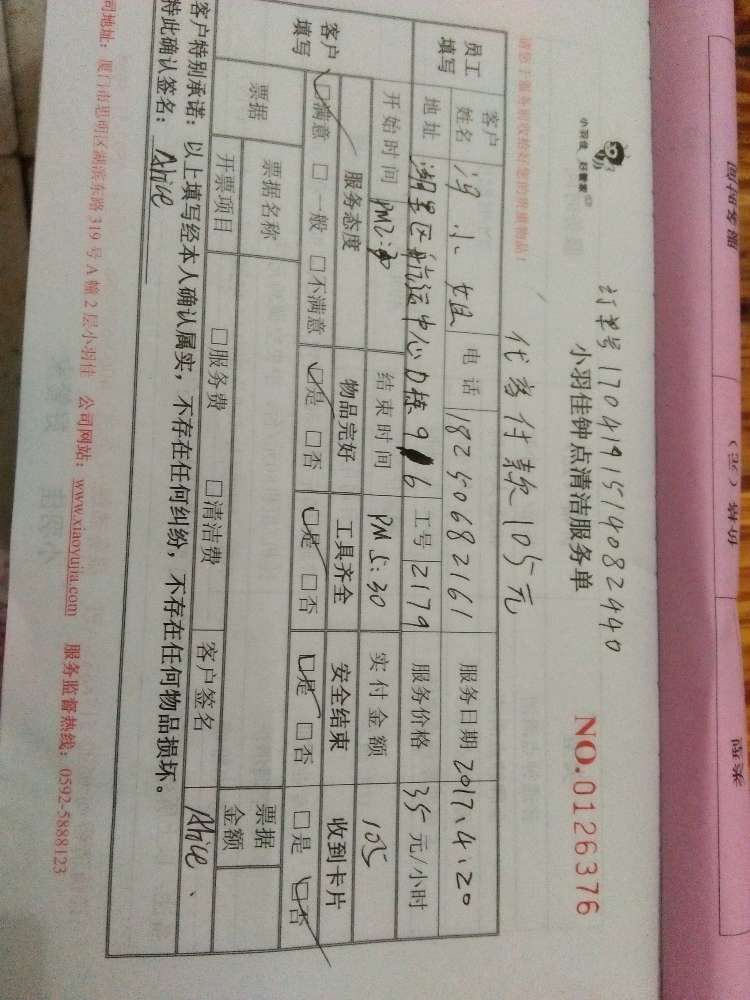 订单号 1704191514082440
小羽佳 好管家
小羽佳钟点清洁服务单
NO.0126376
请您于服务前收拾好您的贵重物品！
代客付款105元
员工填写
客户姓名 冯小姐 电话 18250682161 服务日期 2017.4.20
地址 湖里区航运中心D栋916 工号 2179 服务价格 35元/小时
开始时间 PM2:30 结束时间 PM5:30 实付金额 105
客户填写
服务态度 物品完好 工具齐全 安全结束 收到卡片
☑满意 □一般 □不满意 ☑是 □否 ☑是 □否 ☑是 □否 □是 ☑否
票据 票据名称 票据金额
开票项目 □服务费 □清洁费 客户签名 Alice
客户特别承诺：以上填写经本人确认属实，不存在任何纠纷，不存在任何物品损坏。
特此确认签名：Alice
司地址：厦门市思明区湖滨东路319号A幢2层小羽佳 公司网站：www.xiaoyujia.com 服务监督热线：0592-5888123